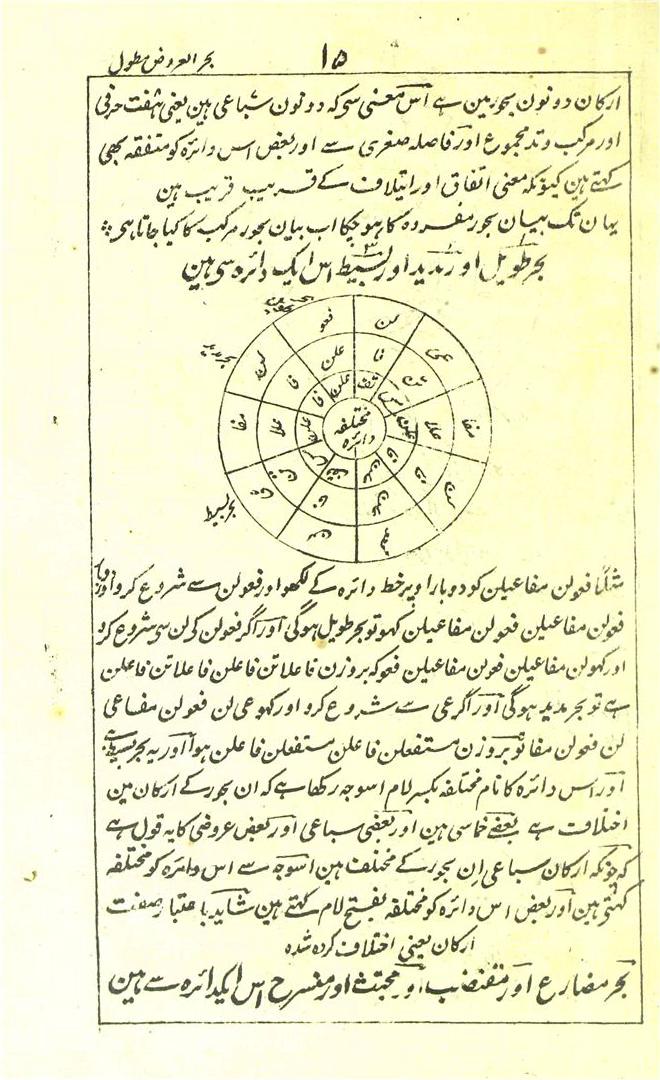 بحر العروض مطول
۱۵
ارکان دونون بحور مین ہے اس معنی سی کہ دونون سباعی ہین یعنی ہفت حرفی
اور مرکب وتد مجموع اور فاصلہ صغری سے اور بعض اس دائرہ کو متفقہ بھی
کہتے ہین کیونکہ معنی اتفاق اور ایتلاف کے قریب قریب ہین
یہان تک بیان بحور مفردہ کا ہو چکا اب بیان بحور مرکب کا کیا جاتا ہی
بحر طویل اور مدید اور بسیط اس ایک دائرہ سی ہین
بحر مدید
بحر بسیط
فعو
لن
مفا
عی
لن
فعو
لن
مفا
عی
لن
فا
علا
تن
فا
علن
فا
علا
تن
فا
علن
مختلفہ
دائرہ
مثلاً فعولن مفاعیلن کو دوبار اوپر خط دائرہ کے لکھو اور فعولن سے شروع کرو اور
فعولن مفاعیلن فعولن مفاعیلن کہو تو بحر طویل ہوگی اور اگر فعولن کی لن سی شروع کرو
اور کہو لن مفاعیلن فعولن مفاعیلن فعو کہ بروزن فاعلاتن فاعلن فاعلاتن فاعلن
ہے تو بحر مدید ہوگی اور اگر عی سے شروع کرو اور کہو عی لن فعولن مفاعی
لن فعولن مفا تو بروزن مستفعلن فاعلن مستفعلن فاعلن ہوا اور یہ بحر بسیط ہے
اور اس دائرہ کا نام مختلفہ بکسر لام اسوجہ رکھا ہے کہ ان بحور کے ارکان مین
اختلاف ہے بعضے خماسی ہین اور بعضی سباعی اور بعض عروضی کا یہ قول ہے
کہ چونکہ ارکان سباعی ان بحور کے مختلف ہین اسوجہ سے اس دائرہ کو مختلفہ
کہتی ہین اور بعض اس دائرہ کو مختلفہ بفتح لام کہتے ہین شاید باعتبار صفت
ارکان یعنی اختلاف کردہ شدہ
بحر مضارع اور مقتضب اور مجتث اور منسرح اس ایکدائرہ سے ہین